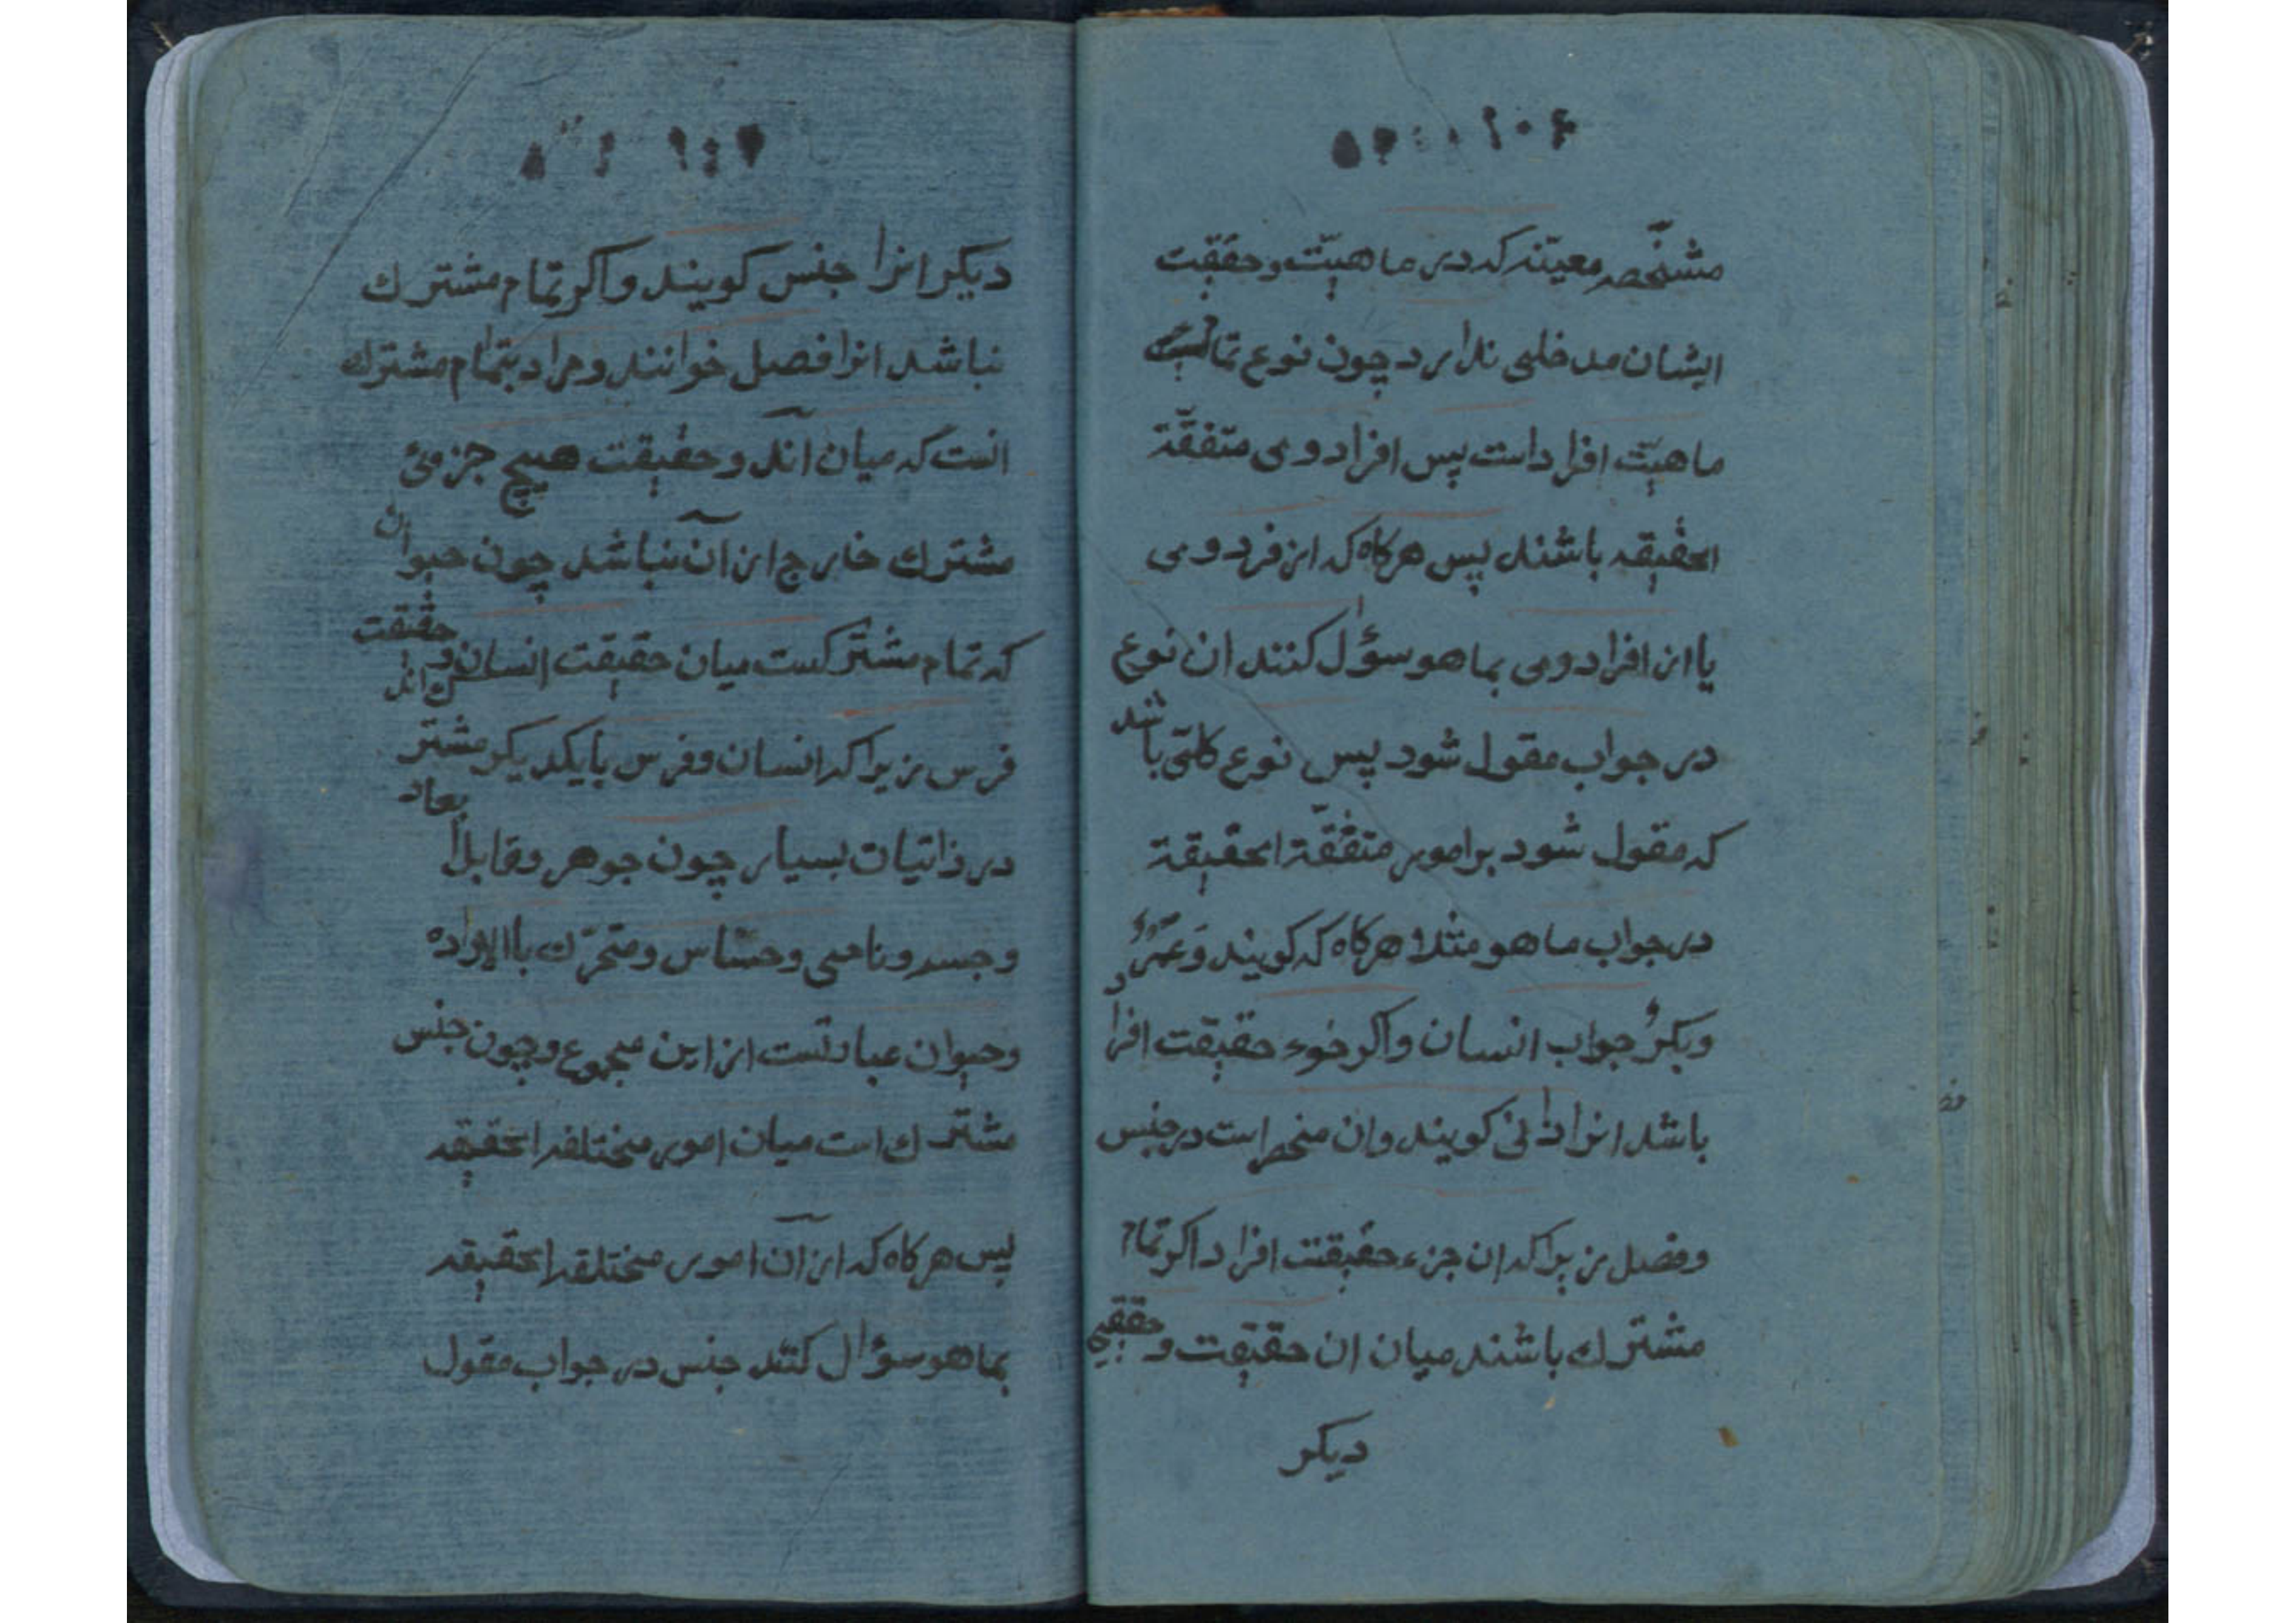 مشخّصه معینه که در ماهیّت و حقیقت
ایشان مدخلی ندارد چون نوع تمام
ماهیّت افراد است پس افراد وی متفقّة
الحقیقه باشند پس هرکاه که از فرد وی
یا از افراد وی بما هو سؤال کنند ان نوع
در جواب مقول شود پس نوع کلّی باشد
که مقول شود بر امور متفقّة الحقیقة
در جواب ما هو مثلا هرکاه که کویند و عمرو
وبکر جواب انسان واکر جزء حقیقت افراد
باشد انرا ذاتی کویند وان منحصر است در جنس
وفصل زیرا که ان جزء حقیقت افراد اکر تمام
مشترك باشند میان ان حقیقت و حقیقتی
دیکر
دیکر انرا جنس کویند واکر تمام مشترك
نباشد انرا فصل خوانند ومراد بتمام مشترك
انست که میان آند و حقیقت هیچ جزوئ
مشترك خارج از آن نباشد چون حیوان
که تمام مشترکست میان حقیقت انسان و حقیقت
فرس زیرا که انسان وفرس بایکدیکر مشترك اند
در ذاتیات بسیار چون جوهر وقابل ابعاد
وجسم ونامی وحسّاس ومتحرّك باالاراده
وحیوان عبارتست از این مجموع وچون جنس
مشترك است میان امور مختلفه الحقیقه
پس هرکاه که از آن امور مختلفه الحقیقه
بما هو سؤال کنند جنس در جواب مقول